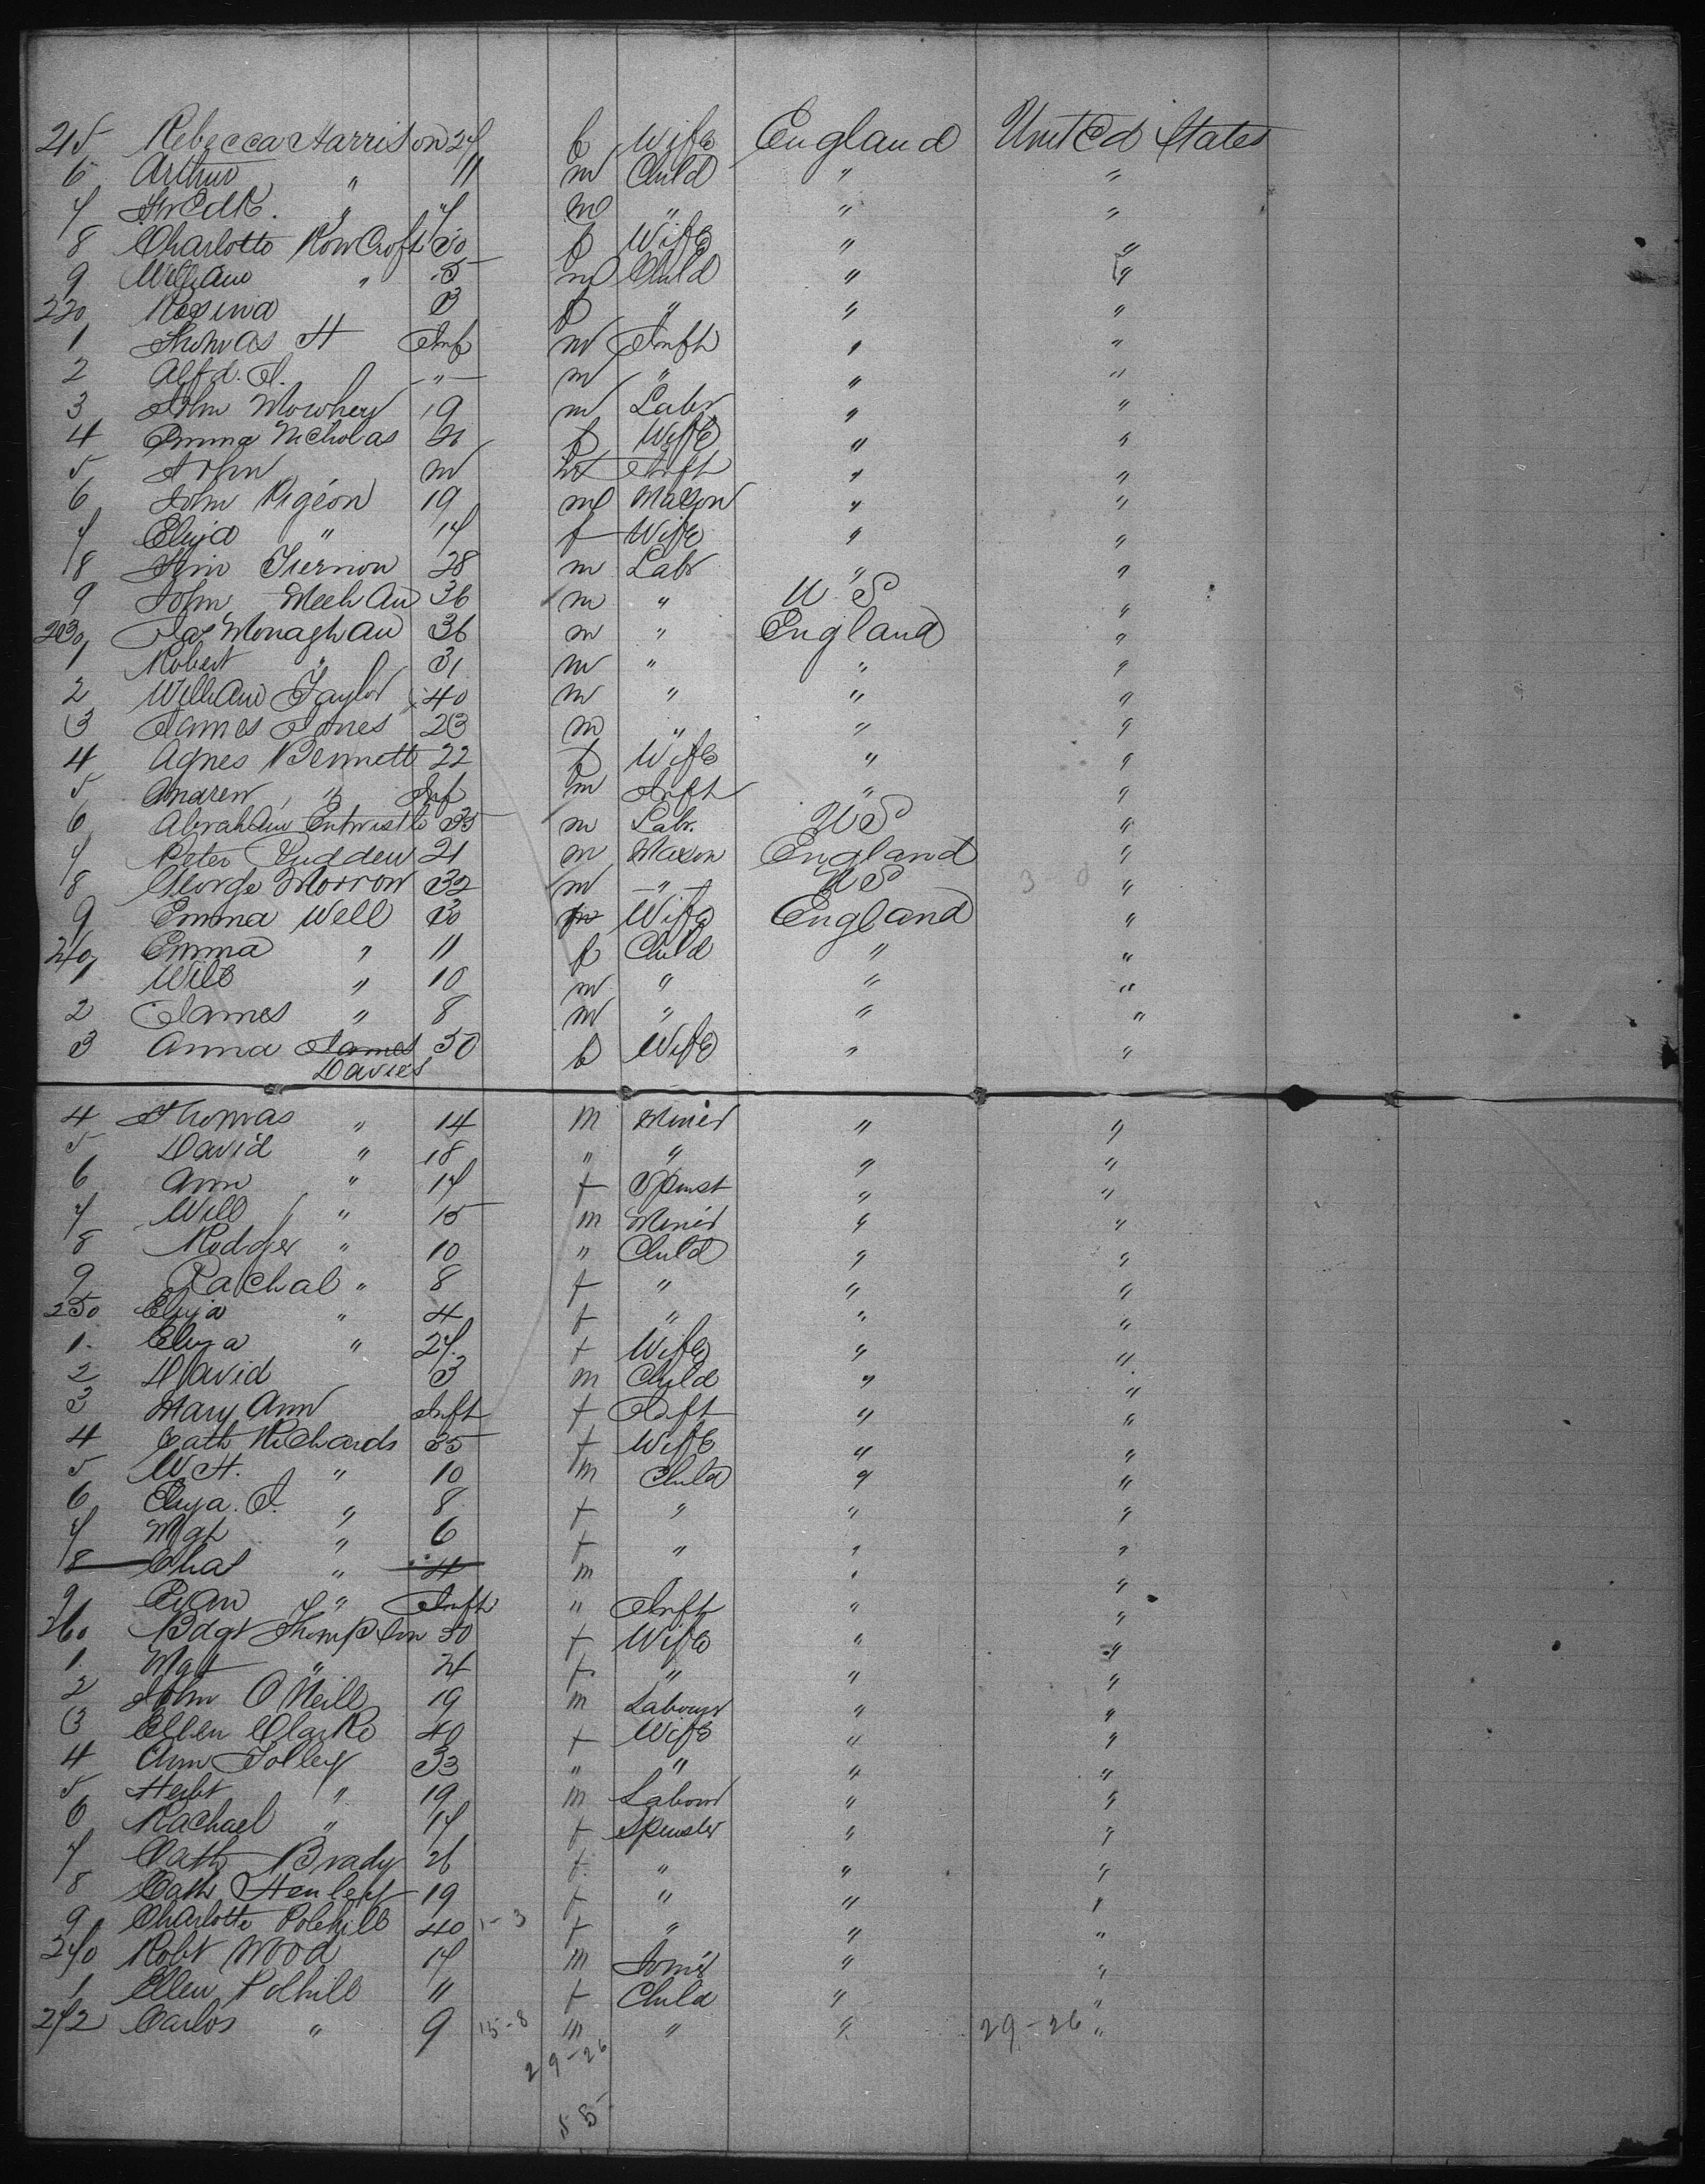 215 Rebecca Harrison 27 f Wife England United States
6 Arthur " 11 m Child " "
7 Fredk. " 7 m " " "
8 Charlotte Rowcroft 30 f Wife " "
9 William " 5 m Child " "
220 Rosina 3 f " " "
1 Thomas H Inf m Inft " "
2 Alfd. J. " m " " "
3 John Mowhey 19 m Labr " "
4 Emma Nicholas 21 f Wife " "
5 John m Inft " "
6 John Pigeon 19 m Mason " "
7 Eliza " 17 f Wife " "
8 Jim Tiernion 28 m Labr " "
9 John Meehan 36 m " U S "
230 Jas Monaghan 36 m " England "
1 Robert " 31 m " " "
2 William Taylor 40 m " " "
3 James Jones 23 m " " "
4 Agnes Bennett 22 f Wife " "
5 Andrew " Inf m Inft " "
6 Abraham Entwistle 35 m Labr. US "
7 Peter 21 m Mason England "
8 George Morrow 32 m " US 3-0 "
9 Emma Well 30 f Wife England "
240 Emma " 11 f Child " "
1 Will " 10 m " " "
2 James " 8 m " " "
3 Anna James 50 f Wife " "
Davies
4 Thomas " 14 m Miner " "
5 David " 18 " " " "
6 Ann " 17 f Spinst " "
7 Will " 15 m Miner " "
8 Rodger " 10 " Child " "
9 Rachal " 8 f " " "
250 Eliza " 4 f " " "
1. Eliza " 27 f Wife " "
2 David 3 m Child " "
3 Mary Ann Inft f Inft " "
4 Cath Richards 35 f Wife " "
5 W H. " 10 m Child " "
6 Eliza. J. " 8 f " " "
7 Mgt " 6 f " " "
8 Chas " 4 m " " "
9 Evan " Inft " Inft " "
260 Bdgt Thompson 50 f Wife " "
1. Mgt " 21 f " " "
2 John O Neill 19 m Labourer " "
3 Ellen Clarke 40 f Wife " "
4 Ann Tolley 33 " " " "
5 Herbt " 19 m Labour " "
6 Rachael " 17 f Spinster " "
7 Cath Brady 26 f " " "
8 Cath Henley 19 f " " "
9 Charlotte Polehill 40 1-3 f " " "
270 Robt Wood 17 m " "
1 Ellen Polhill 11 f Child " "
272 Carlos " 9 15-8 m " " 29-26 "
29-26